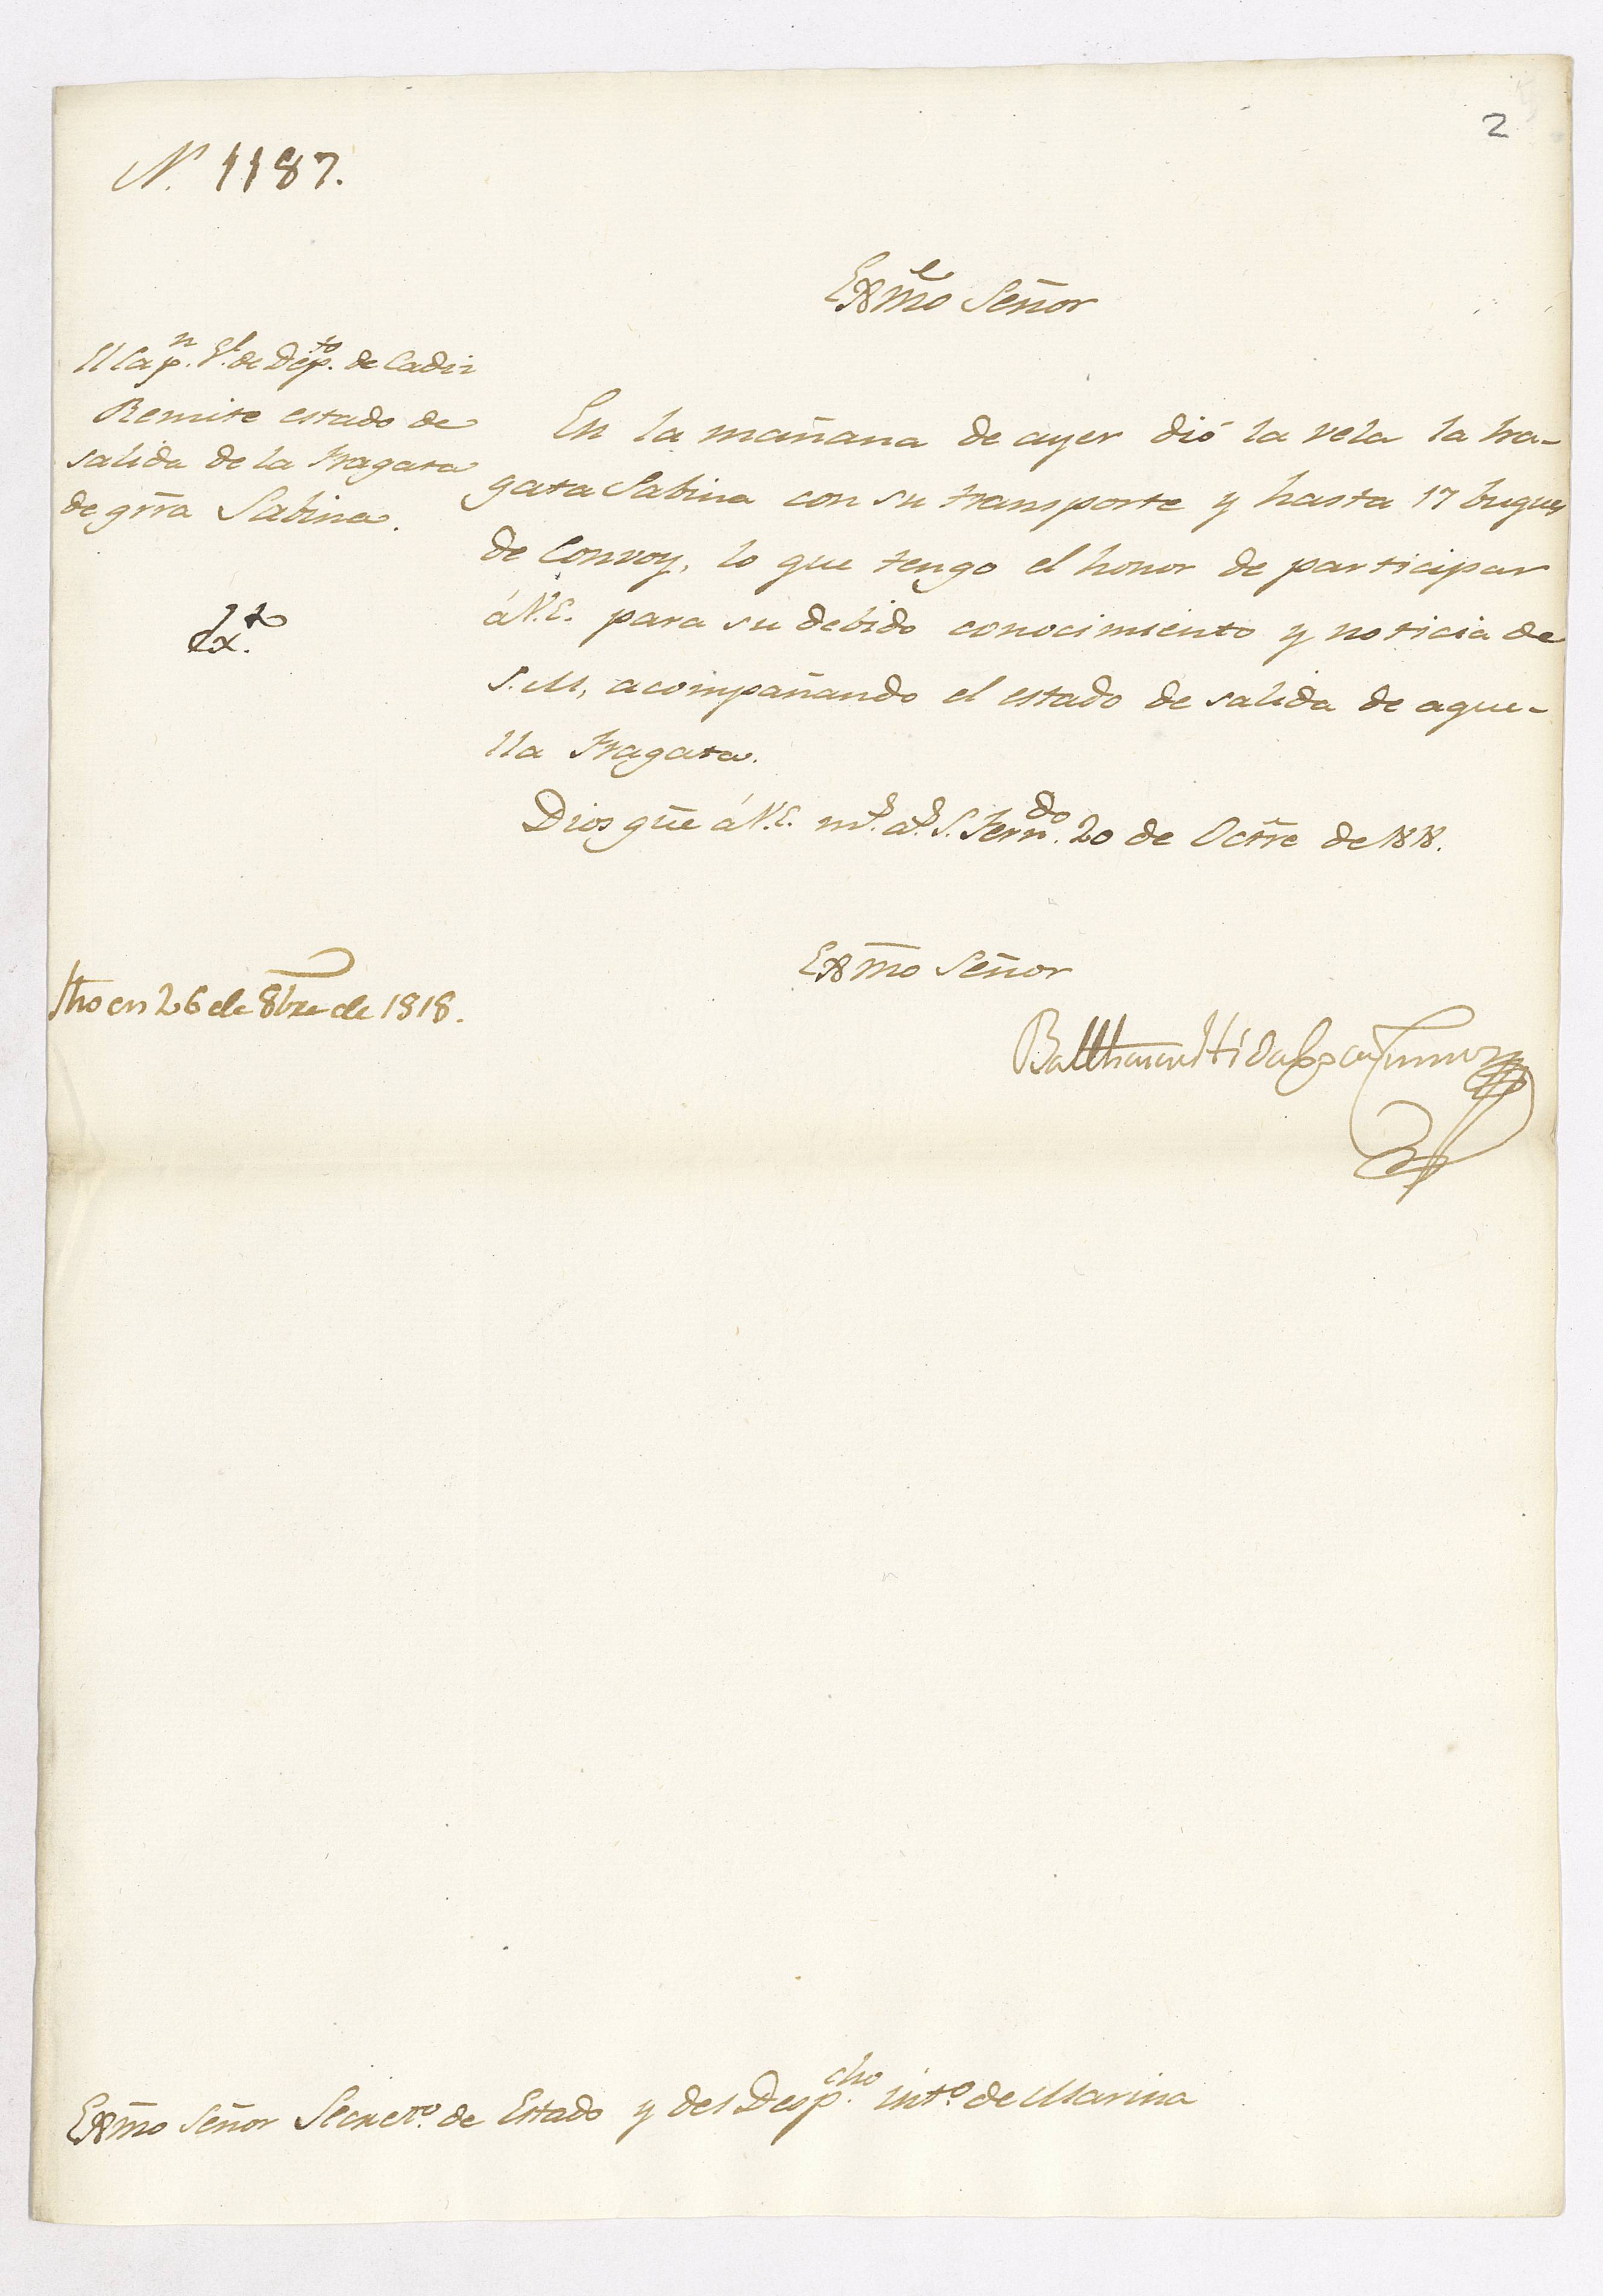 2
N. 1187.
Exm̃o Señor
El Capn. Gl. de Depto. de Cadiz
Remite estado de
salida de la Fragata
de grr̃a Sabina.
En la mañana de ayer dió la vela la Fra-
gata Sabina con su transporte y hasta 17 buques
de Convoy, lo que tengo el honor de participar
á V.E. para su debido conocimiento y noticia de
S.M, acompañando el estado de salida de aque-
lla Fragata.
Dios gũe á V.E. ms. as. S. Ferndo. 20 de Octr̃e de 1818.
Exm̃o Señor
fho en 26 de 8bre de 1818.
Balthasar Hidalgo de Cisneros
Exm̃o Señor Secreto. de Estado y del Despcho. Into. de Marina